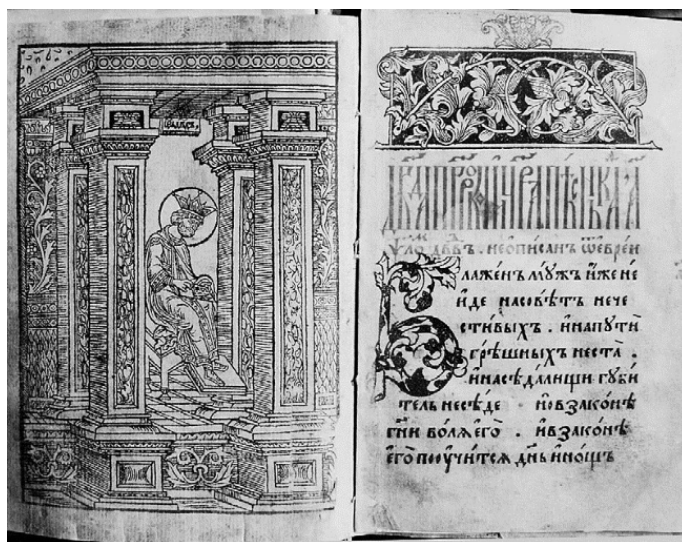 Давида пророка и царя песнь а҃
ѱало́мъ дв҃двъ. не ѡписанъ ѿ еврей
Блаже́нъ мꙋжъ и҆́же не
и҆́де на совѣ́тъ нече
сти́выхъ . и҆ на пꙋти́
грѣ́шныхъ не ста̀ .
и҆ на сѣда́лищи гꙋби
тель не сѣ́де но в зако́нѣ
гн҃и во́лѧ є҆го̀ . и҆ в зако́нѣ
є҆го̀ поꙋчи́тсѧ дн҃ь и҆ но́щь